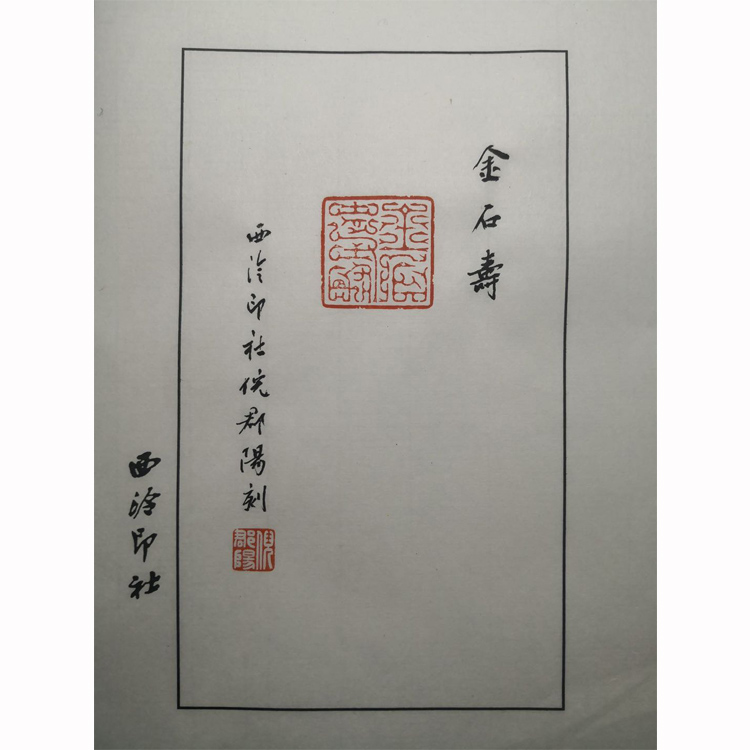 金石壽
金石壽
西泠印社倪郡陽刻
倪郡陽
西泠印社